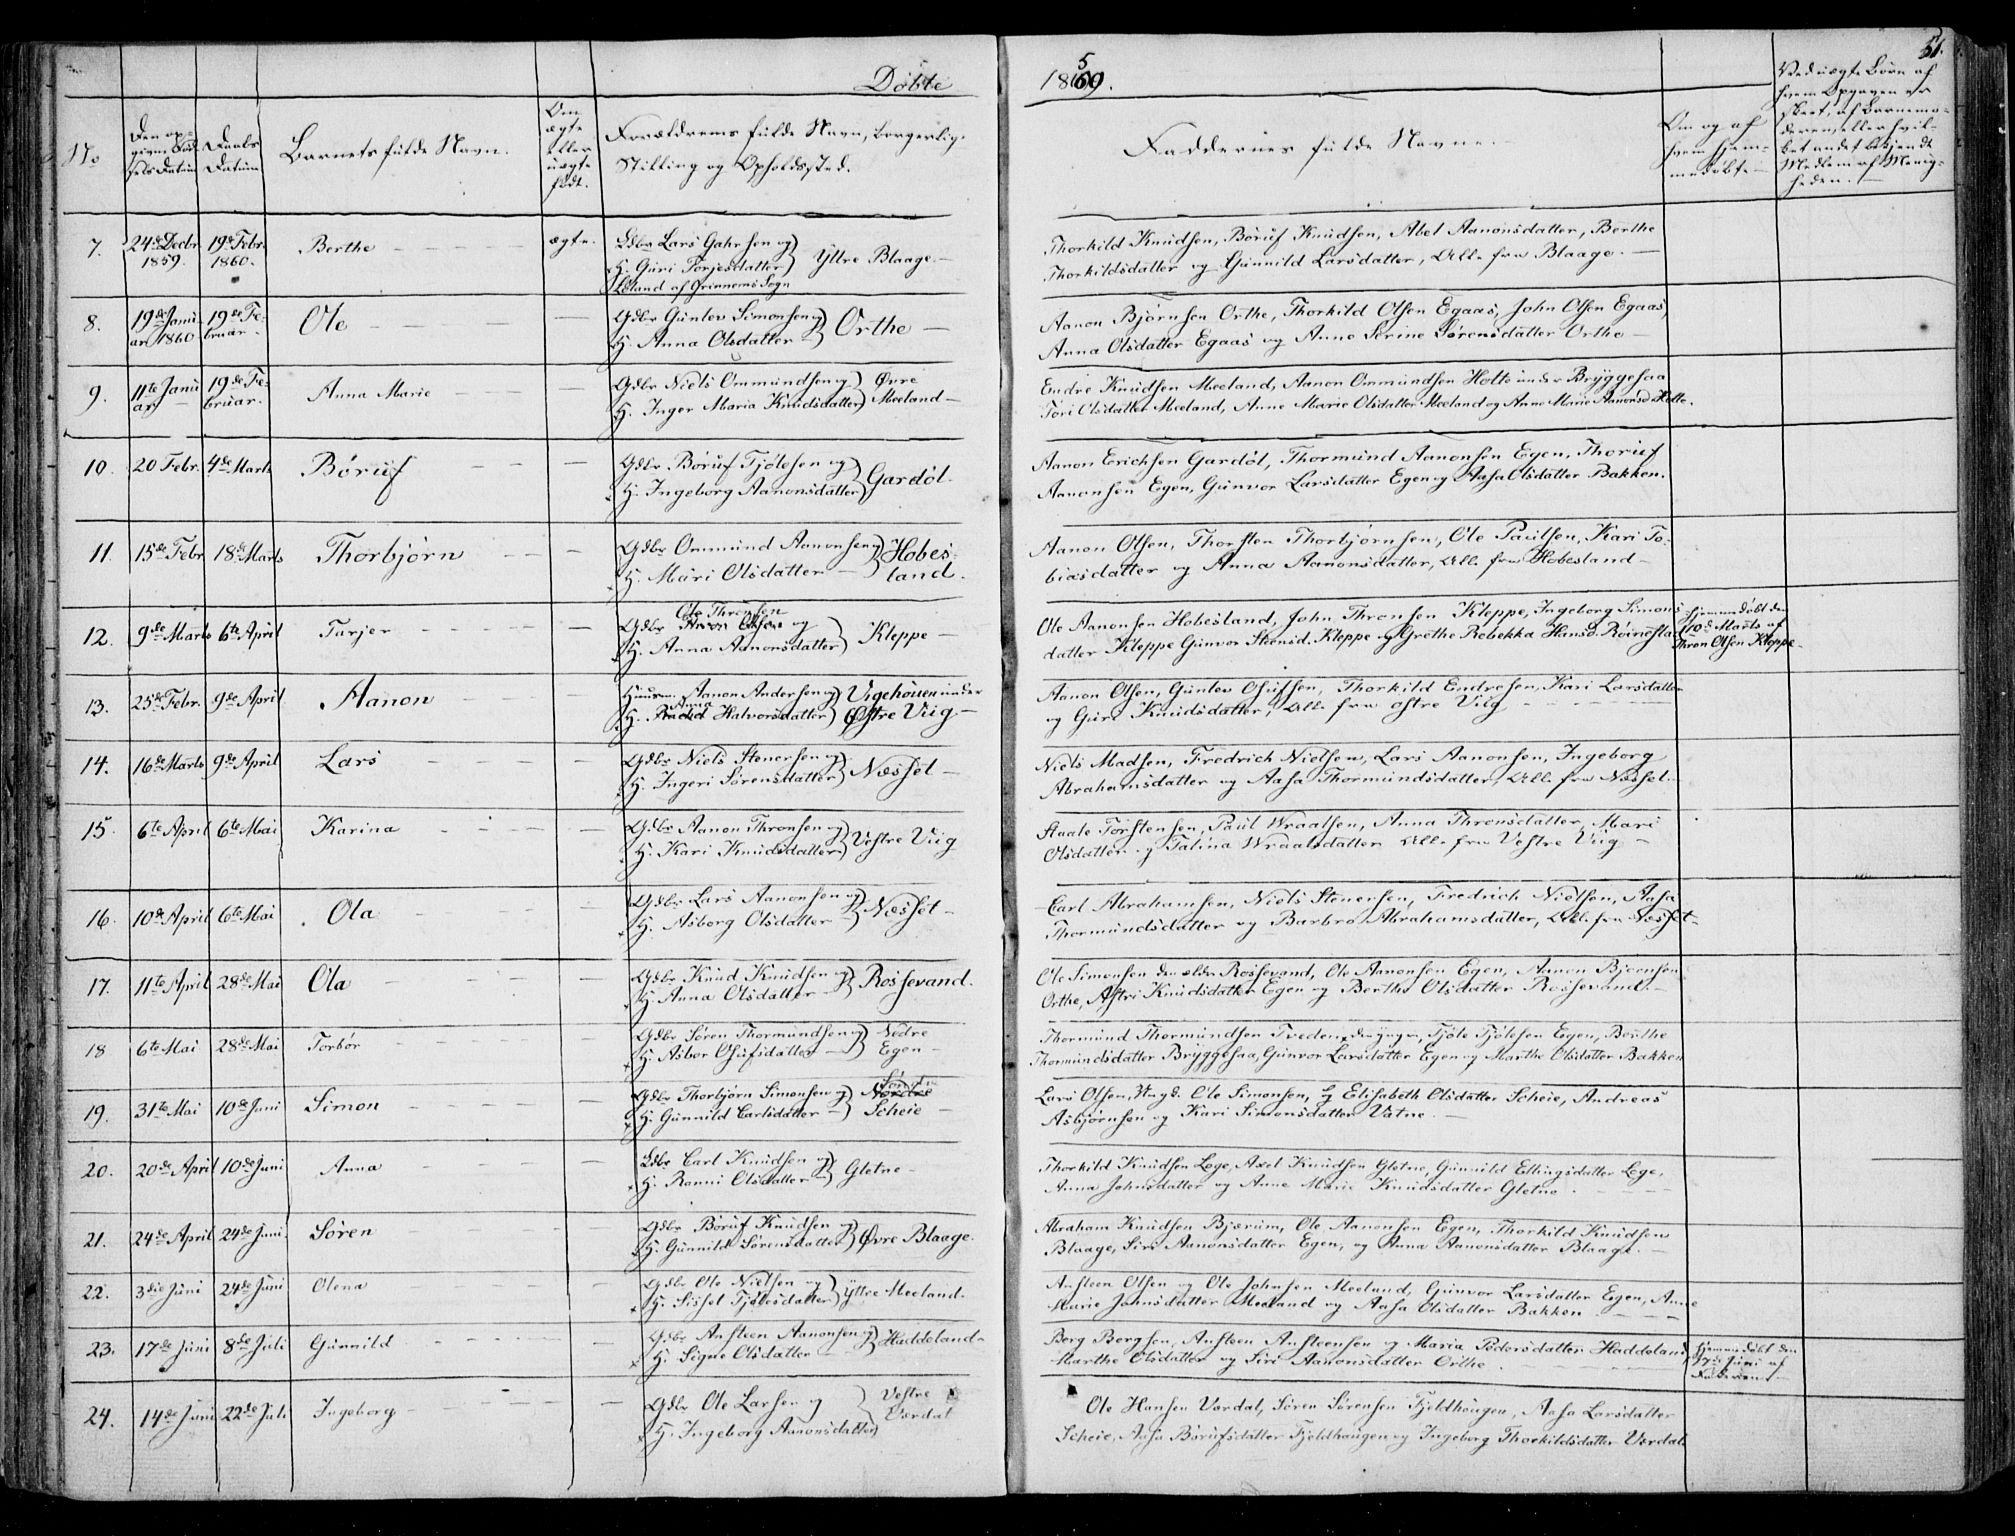 Døbte 1859.
51.
No
Den op-
givne Fød-
sels Datum
Daabs
Datum
Barnets fulde Navn.
Om
ægte
eller
uægte
født.
Forældrenes fulde Navn, borgerlig.
Stilling og Opholdssted.
Faddernes fulde Navne.
Om og af
hvem hjem-
medøbt
Ved uægte Børn af
hvem Opgaven er
skeet, af Barnemo-
deren, eller hvil-
ket andet bekjendt
Medlem af Menig-
heden.
7. 24de Decbr 19de Febr. Berthe ægte. Gdbr Lars Gahrsen og
1859. 1860. H. Guri Torjesdatter Yttre Blaage
Løland af Grinnems Sogn
Thorkild Knudsen, Børuf Knudsen, Abel Aanonsdatter, Berthe
Thorkildsdatter og Gunnild Larsdatter, Alle fra Blaage.
8. 19de Janu- 19de Fe- Ole Gdbr Gunlev Simonsen og
ar 1860 bruar. H. Anna Olsdatter Orthe
Aanon Bjørnsen Orthe, Thorkild Olsen Egaas, John Olsen Egaas,
Anna Olsdatter Egaas og Anne Serine Sørensdatter Orthe
9. 11te Janu 19de Fe- Anna Marie Gdbr Niels Ommundsen og Øvre
ar bruar. H. Inger Maria Knudsdatter Meeland
Endre Knudsen Meeland, Aanon Ommundsen Holte under Bryggesaa
Tori Olsdatter Meeland, Anne Marie Olsdatter Meeland og Anne Marie Aanonsd. Holte.
10. 20 Febr. 4de Marts Børuf Gdbr Børuf Tjølesen og
H. Ingeborg Aanonsdatter Gardøl.
Aanon Erichsen Gardøl, Thormund Aanonsen Egen, Thoruf
Aanonsen Egen, Gunvor Larsdatter Egen og Aasa Olsdatter Bakken.
11. 15de Febr. 18de Marts Thorbjørn Gdbr Ommund Aanonsen og Hobes-
H. Mari Olsdatter land.
Aanon Olsen, Thorsten Thorbjørnsen, Ole Paulsen, Kari To-
biasdatter og Anna Aanonsdatter, Alle fra Hobesland
12. 9de Marts 6te April Tarjer Ole Thronsen
Gdbr og
H. Anna Aanonsdatter Kleppe
Ole Aanonsen Hobesland, John Thronsen Kleppe, Ingeborg Simons-
datter Kleppe Gunvor Stensd. Kleppe og Grethe Rebekka Hansd. Røinestad
Hjemmedøbt den
10de Marts af
Thron Olsen Kleppe
13. 25de Febr. 9de April Aanon Huusm. Aanon Andersen og Vigehouen under
H. Anna Halvorsdatter Østre Viig
Aanon Olsen, Gunlev Osufsen, Thorkild Endresen, Kari Larsdatter
og Guri Knudsdatter, Alle fra østre Viig
14. 16de Marts 9de April Lars Gdbr Niels Stenersen og
H. Ingeri Sørensdatter Næsset
Niels Madsen, Fredrich Nielsen, Lars Aanonsen, Ingeborg
Abrahamsdatter og Aasa Thormundsdatter, Alle fra Næsset.
15. 6te April 6te Mai Karina Gdbr Aanon Thronsen og
H. Kari Knudsdatter Vestre Viig
Staale Torstensen, Paul Wraalsen, Anna Thronsdatter, Mari
Olsdatter og Talina Wraalsdatter Alle fra Vestre Viig
16. 10de April 6te Mai Ola Gdbr Lars Aanonsen og
H. Asborg Olsdatter Næsset
Carl Abrahamsen, Niels Stenersen, Fredrich Nielsen, Aasa
Thormundsdatter og Barbro Abrahamsdatter, Alle fra Næsset
17. 11te April 28de Mai Ola Gdbr Knud Knudsen og
H. Anna Olsdatter Rossevand.
Ole Simonsen den ældr. Rossevand, Ole Aanonsen Egen, Aanon Bjørnsen
Orthe, Astri Knudsdatter Egen og Berthe Olsdatter Rossevand.
18 6te Mai 28de Mai Torbør Gdbr Søren Thormundsen og Nedre
H. Asbor Osufsdatter Egen
Thormund Thormundsen Tveden, den yngre, Tjøle Tjølesen Egen, Berthe
Thormundsdatter Bryggesaa, Gunvor Larsdatter Egen og Marthe Olsdatter Bakken
19. 31te Mai 10de Juni Simon Gdbr Thorbjørn Simonsen og Nordre
H. Gunnild Carlsdatter Scheie
Lars Olsen, Ole Simonsen, og Elisabeth Olsdatter Scheie, Andreas
Asbjørnsen og Kari Simonsdatter Vatne.
20. 20de April 10de Juni Anna Gdbr Carl Knudsen og
H. Ronni Olsdatter Gletne
Thorkild Knudsen Lege, Axel Knudsen Gletne, Gunnild Ellingsdatter Lege,
Anna Johnsdatter og Anne Marie Knudsdatter Gletne.
21. 24de April 24de Juni Søren Gdbr Børuf Knudsen og
H. Gunnild Sørensdatter Øvre Blaage.
Abraham Knudsen Bjærum, Ole Aanonsen Egen, Thorkild Knudsen
Blaage, Siri Aanonsdatter Egen, og Anna Aanonsdatter Blaage.
22. 3die Juni 24de Juni Olena Gdbr Ole Nielsen og
H. Sissel Tjølesdatter Yttre Meeland.
Ansteen Olsen og Ole Johnsen Meeland, Gunvor Larsdatter Egen, Anne
Marie Johnsdatter Meeland og Aasa Olsdatter Bakken
23. 17de Juni 8de Juli Gunnild Gdbr Ansteen Aanonsen og
H. Signe Olsdatter Haddeland
Berg Bergsen, Ansteen Ansteensen og Maria Pedersdatter Haddeland,
Marthe Olsdatter og Siri Aanonsdatter Orthe.
Hjemmedøbt den
17de Juni af
Faderen
24. 14de Juni 22de Juli Ingeborg Gdbr Ole Larsen og Vestre
H. Ingeborg Aanonsdatter Værdal
Ole Hansen Værdal, Søren Sørensen Fjeldhougen, Aasa Larsdatter
Scheie, Aasa Børufsdatter Fjeldhaugen og Ingeborg Thorkildsdatter Værdal